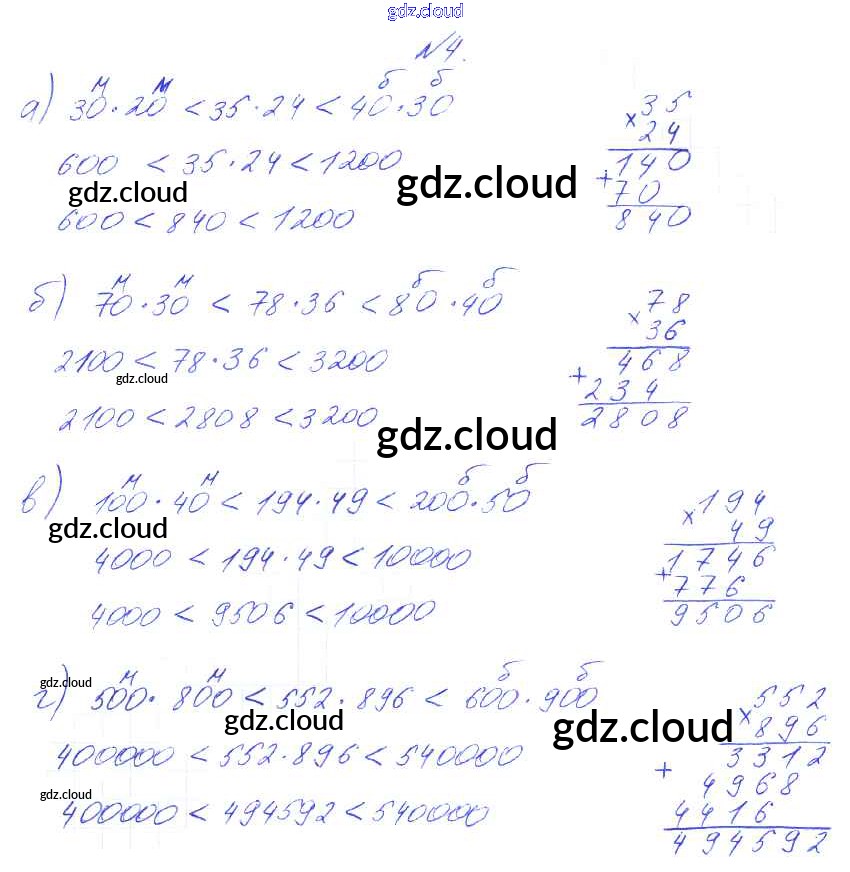 gdz.cloud
№4.
м м б б
а) 30·20 < 35·24 < 40·30
600 < 35·24 < 1200
gdz.cloud gdz.cloud
600 < 840 < 1200
35
×
24
140
+
70
840
м м б б
б) 70·30 < 78·36 < 80·40
2100 < 78·36 < 3200
gdz.cloud
2100 < 2808 < 3200
gdz.cloud
78
×
36
468
+
234
2808
м м б б
в) 100·40 < 194·49 < 200·50
gdz.cloud
4000 < 194·49 < 10000
4000 < 9506 < 10000
194
×
49
1746
+
776
9506
gdz.cloud
м м б б
г) 500·800 < 552·896 < 600·900
gdz.cloud gdz.cloud
400000 < 552·896 < 540000
gdz.cloud
400000 < 494592 < 540000
552
×
896
3312
+
4968
4416
494592